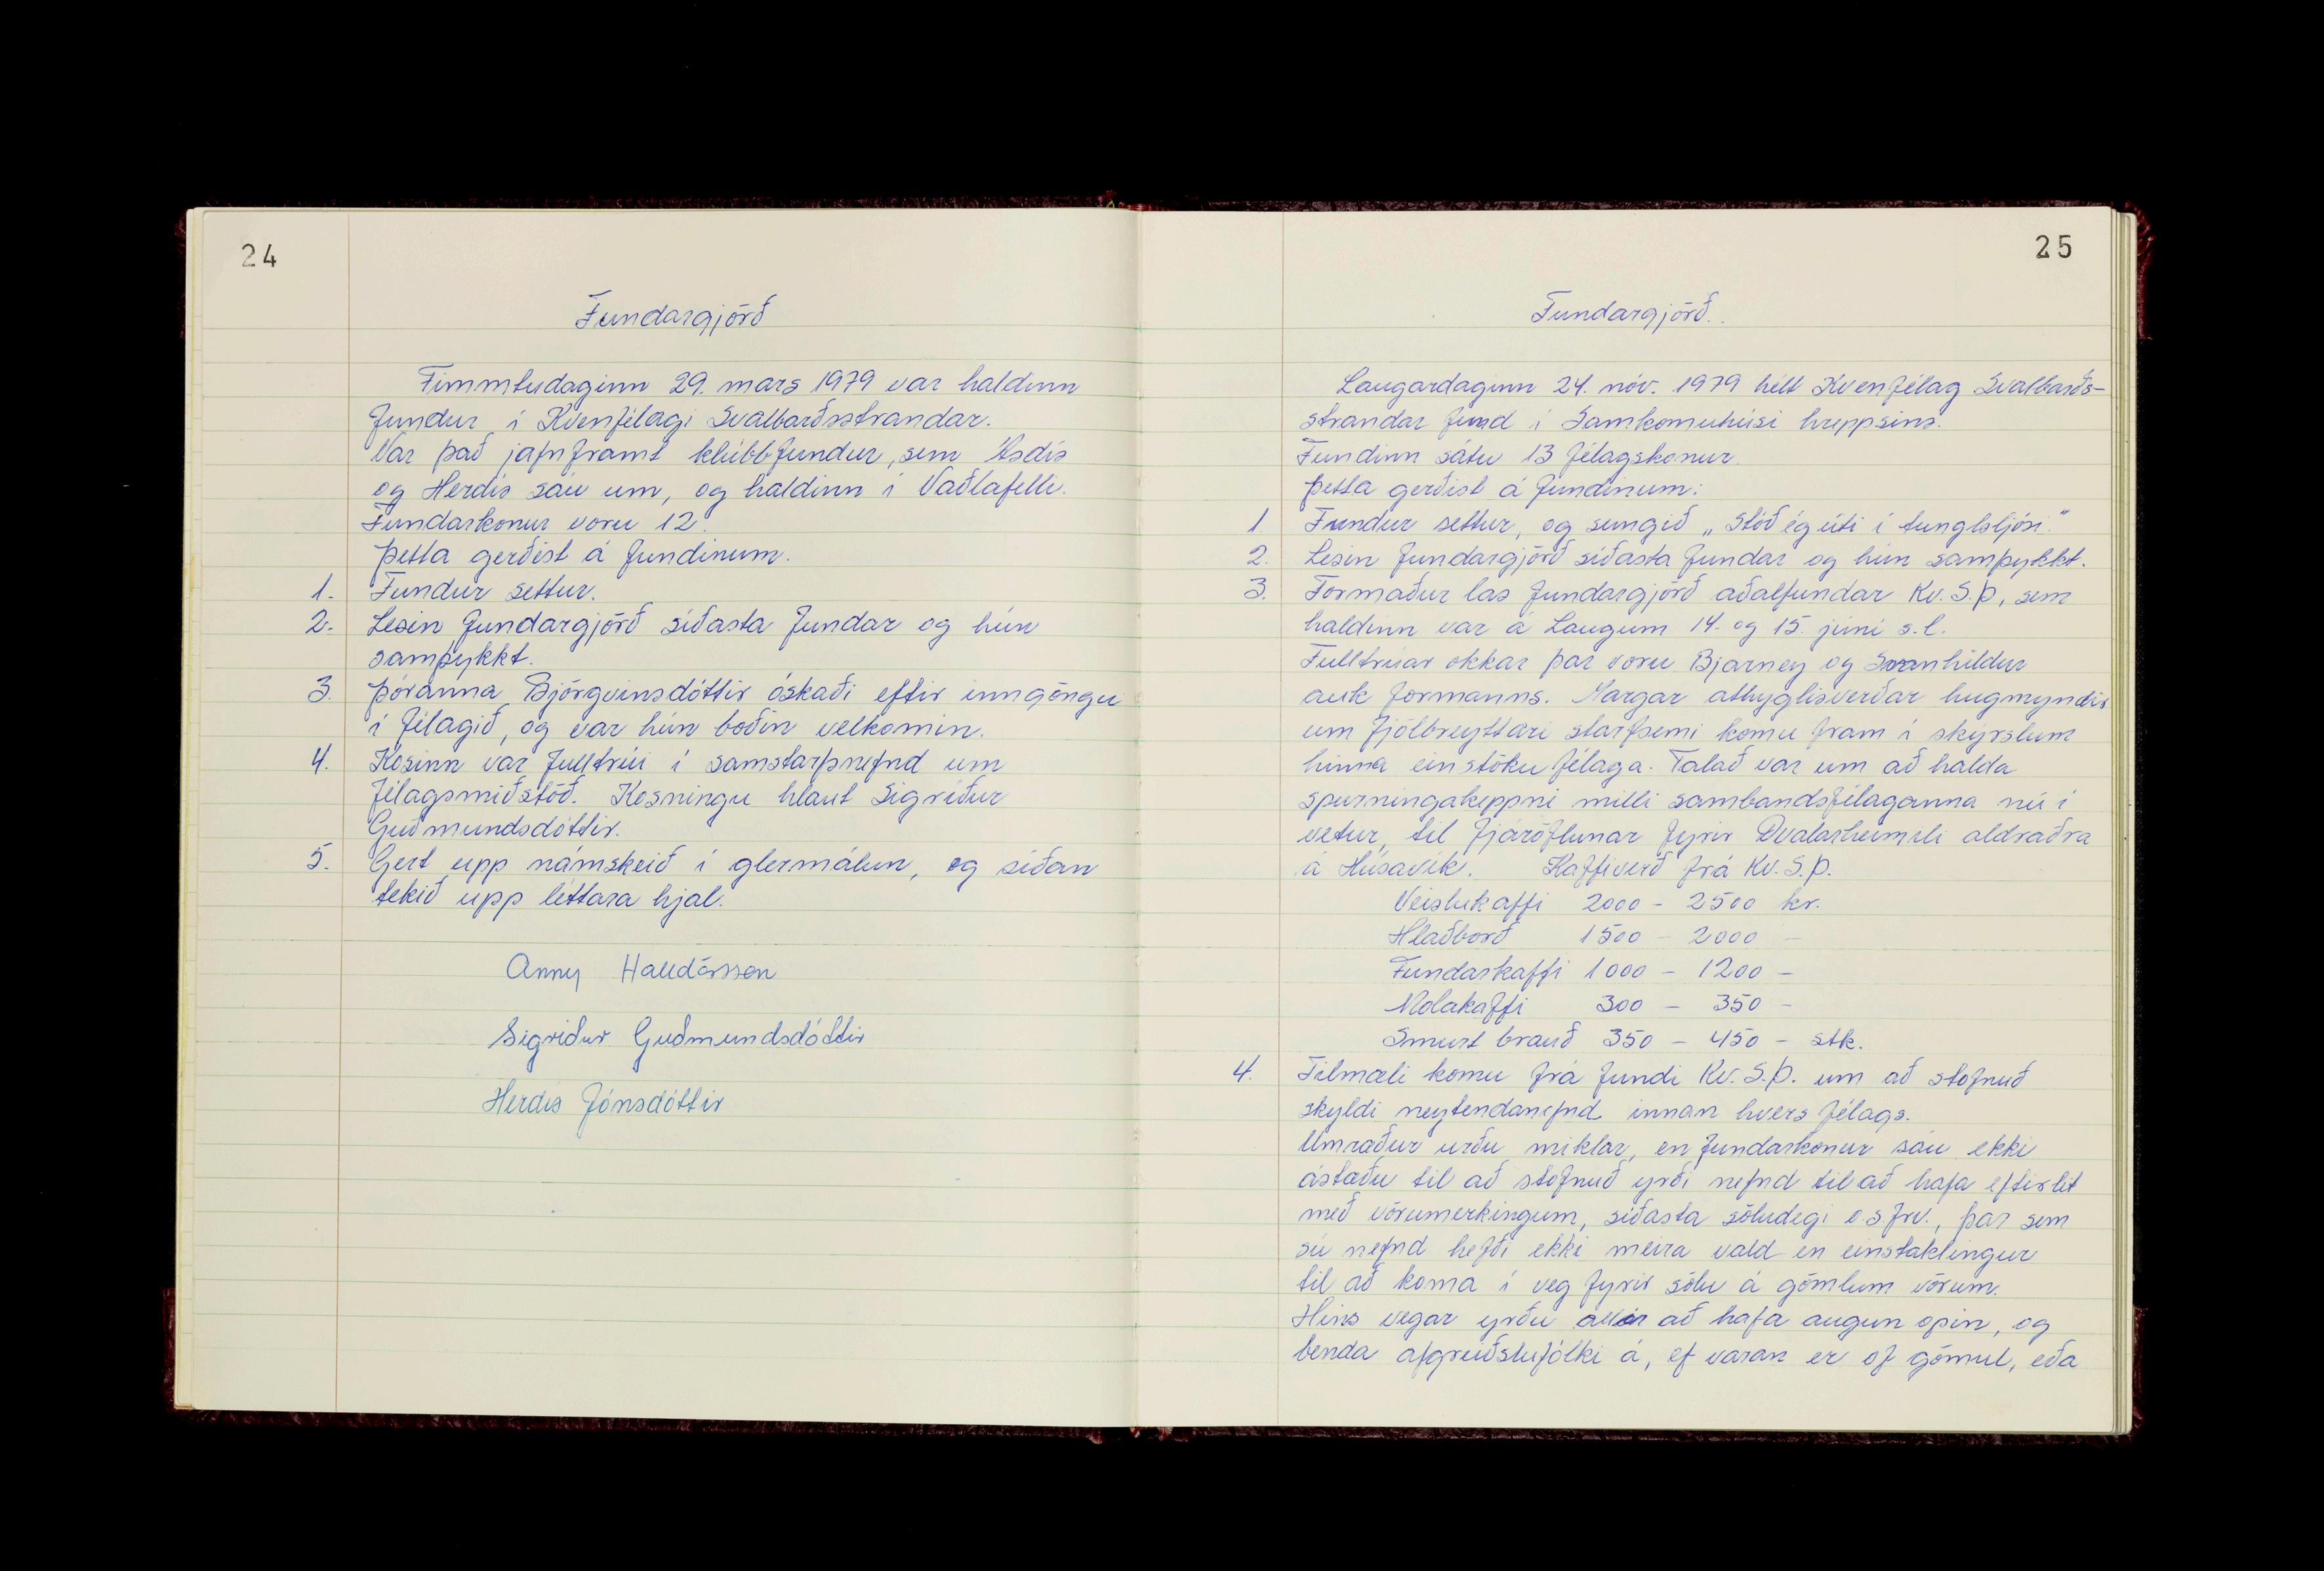 24
Fundargjörð
Fimmtudaginn 29. mars 1979 var haldinn
fundur í Kvenfélagi Svalbarðsstrandar.
Var það jafnframt klúbbfundur, sem Ásdís
og Herdís sáu um, og haldinn í Vaðlafelli.
Fundarkonur voru 12.
Þetta gerðist á fundinum.
1. Fundur settur.
2. Lesin fundargjörð síðasta fundar og hún
samþykkt.
3. Þóranna Björgvinsdóttir óskaði eftir inngöngu
í félagið, og var hún boðin velkomin.
4. Kosinn var fulltrúi í samstarfsnefnd um
félagsmiðstöð. Kosningu hlaut Sigríður
Guðmundsdóttir.
5. Gert upp námskeið í glermálun, og síðan
tekið upp léttara hjal.
Anny Halldórsson
Sigríður Guðmundsdóttir
Herdís Jónsdóttir
25
Fundargjörð.
Laugardaginn 24. nóv. 1979 hélt Kvenfélag Svalbarðs-
strandar fund í Samkomuhúsi hreppsins.
Fundinn sátu 13 félagskonur.
Þetta gerðist á fundinum:
1 Fundur settur, og sungið „Stóð ég úti í tunglsljósi."
2. Lesin fundargjörð síðasta fundar og hún samþykkt.
3. Formaður las fundargjörð aðalfundar Kv.S.Þ, sem
haldinn var á Laugum 14. og 15. júní s.l.
Fulltrúar okkar þar voru Bjarney og Svanhildur
auk formanns. Margar athyglisverðar hugmyndir
um fjölbreyttari starfsemi komu fram í skýrslum
hinna einstöku félaga. Talað var um að halda
spurningakeppni milli sambandsfélaganna nú í
vetur, til fjáröflunar fyrir Dvalarheimili aldraðra
á Húsavík. Kaffiverð frá Kv.S.Þ.
Veislukaffi 2000 - 2500 kr.
Hlaðborð 1500 - 2000 -
Fundarkaffi 1000 - 1200 -
Molakaffi 300 - 350 -
Smurt brauð 350 - 450 - stk.
4. Tilmæli komu frá fundi Kv.S.Þ. um að stofnuð
skyldi neytendanefnd innan hvers félags.
Umræður urðu miklar, en fundarkonur sáu ekki
ástæðu til að stofnuð yrði nefnd til að hafa eftirlit
með vörumerkingum, síðasta söludegi o.s.frv., þar sem
sú nefnd hefði ekki meira vald en einstaklingur
til að koma í veg fyrir sölu á gömlum vörum.
Hins vegar yrðu allir að hafa augun opin, og
benda afgreiðslufólki á, ef varan er of gömul, eða